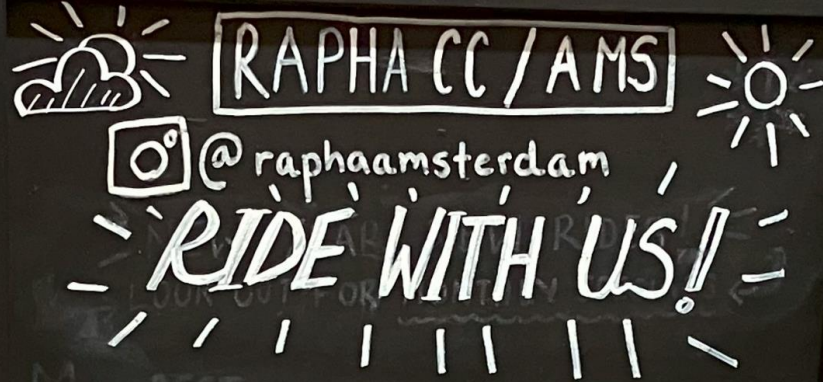 RAPHA CC / AMS
@raphaamsterdam
RIDE WITH US!